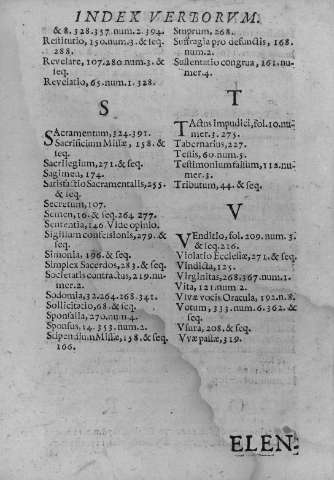 INDEX VERBORVM.
& 8. 328. 357. num. 2. 394.
Restitutio, 150. num. 3. & seq.
288.
Revelare, 107. 280 num. 3. &
seq.
Revelatio, 65. num. 1. 328.
S
SAcramentum, 324. 391.
Sacrificium Missæ, 158. &
seq.
Sacrilegium, 271. & seq.
Sagimen, 174.
Satisfactio Sacramentalis, 255.
& seq.
Secretum, 107.
Semen, 16. & seq. 264 277.
Sententia, 146. Vide opinio.
Sigillum confessionis, 279. &
seq.
Simonia. 196. & seq.
Simplex Sacerdos, 283. & seq.
Societatis contractus, 219. nu-
mer. 2.
Sodomia, 32. 264. 268. 341.
Sollicitatio, 68. & seq.
Sponsalia, 270. num. 4.
Sponsus, 14. 353. num. 2.
Stipendium Missæ, 158. & seq.
166.
Stuprum, 268.
Suffragia pro defunctis, 168.
num. 2.
Sustentatio congrua, 161. nu-
mer. 4.
T
TActus impudici, fol. 10. nu-
mer. 3. 275.
Tabernarius, 227.
Testis, 60. num. 5.
Testimonium falsium, 112. nu-
mer. 3.
Tributum, 44. & seq.
V
VEnditio, fol. 209. num. 5.
& seq. 216.
Violatio Ecclesiæ, 271. & seq.
Vindicta, 125.
Virginitas, 268. 367. num. 1.
Vita, 121. num 2.
Vivæ vocis Oracula, 192. n. 8.
Votum, 333. num. 6. 362. &
seq.
Vsura, 208. & seq.
Vvæ passæ, 319.
ELEN-